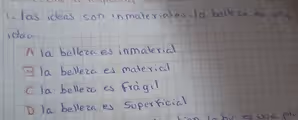 1. las ideas son inmateriales. la belleza es una
idea.
A la belleza es inmaterial
B la belleza es material
C la belleza es frágil
D la belleza es superficial